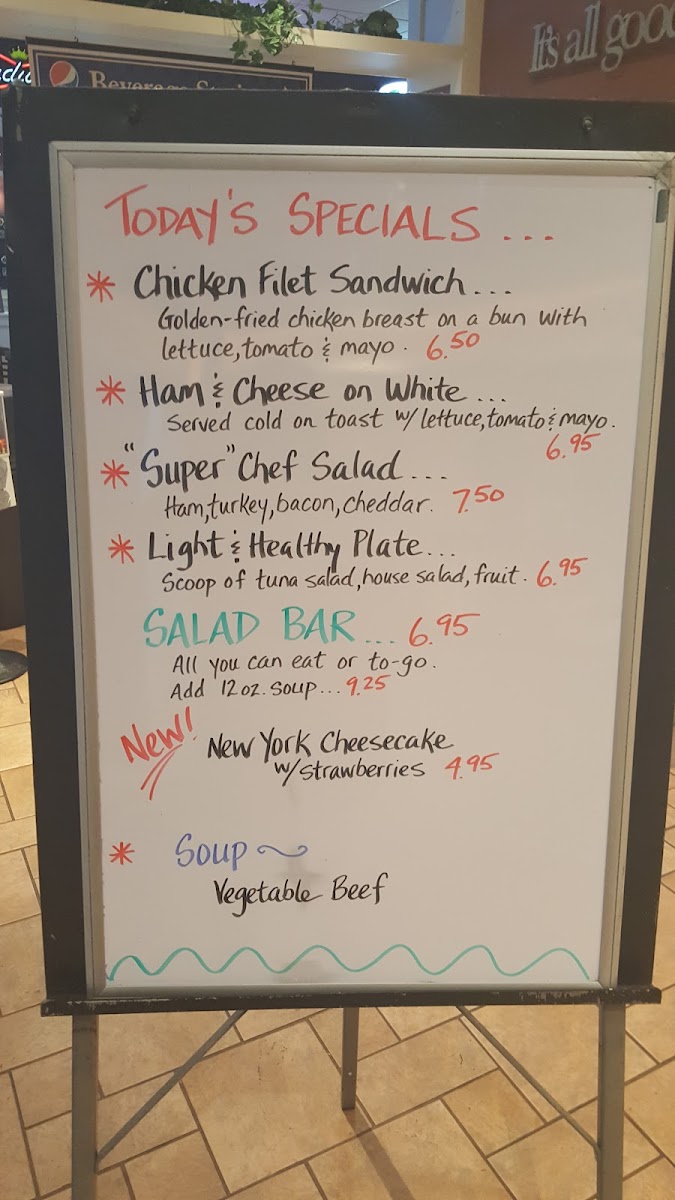 It's all good
Beverage
TODAY'S SPECIALS...
* Chicken Filet Sandwich...
Golden-fried chicken breast on a bun with
lettuce, tomato & mayo. 6.50
* Ham & Cheese on White...
Served cold on toast w/ lettuce, tomato & mayo.
6.95
* "Super" Chef Salad...
Ham, turkey, bacon, cheddar. 7.50
* Light & Healthy Plate...
Scoop of tuna salad, house salad, fruit. 6.95
SALAD BAR... 6.95
All you can eat or to-go.
Add 12 oz. soup... 9.25
New! New York Cheesecake
w/strawberries 4.95
* Soup ~
Vegetable Beef